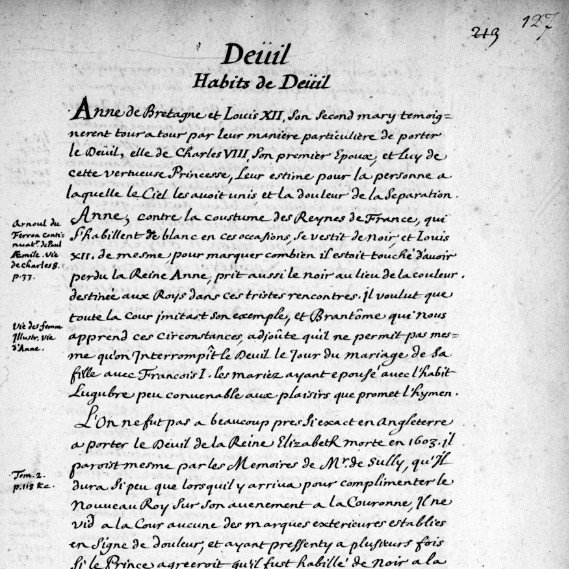 213 127
Deüil
Habits de Deüil
Anne de Bretagne et Louis XII, Son Second mary temoig-
nerent tour a tour par leur maniere particulière de porter
le Deüil, elle de Charles VIII, Son premier Epoux, et Luy de
cette vertueuse Princesse, Leur estime pour la personne a
laquelle le Ciel les avoit unis et la douleur de la Separation.
Anne, contre la coustume des Reynes de France, qui
S'habillent de blanc en ces occasions, se vestit de Noir et Louis
XII. de mesme pour marquer combien il estoit touché d'avoir
perdu la Reine Anne, prit aussi le noir au lieu de la couleur
destinée aux Roys dans ces tristes rencontres. Il voulut que
toute la Cour jmitast son exemple, et Brantôme qui nous
apprend ces circonstances, adjoûte qu'il ne permit pas mes-
me qu'on Interrompît le Deüil le Jour du mariage de Sa
fille avec Francois I. les mariéz ayant epousé avec l'habit
Lugubre peu convenable aux plaisirs que promet l'hymen.
L'On ne fut pas a beaucoup pres Si exact en Angleterre
a porter le Deüil de la Reine Elizabeth morte en 1603. il
paroist mesme par les Memoires de Mr. de Sully, qu'Il
dura Si peu que lorsqu'il y arriva pour complimenter le
Nouveau Roy Sur Son avenement a la Couronne, Il ne
vid a la Cour aucune des marques exterieures establies
en Signe de douleur, et ayant pressenty a plusieurs fois
Si le Prince agreeroit qu'il fust habillé de Noir a la
Arnoul du
Ferron Conti-
nuatr. de Paul
Æmile. Vie
de Charles 8.
p. 33.
Vie des femm
Illustr. vie
d'Anne.
Tom. 2.
p. 113 &c.